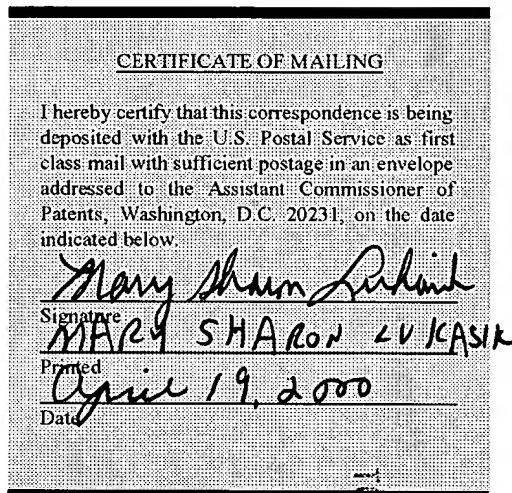 CERTIFICATE OF MAILING
I hereby certify that this correspondence is being
deposited with the U.S. Postal Service as first
class mail with sufficient postage in an envelope
addressed to the Assistant Commissioner of
Patents, Washington, D.C. 20231, on the date
indicated below.
Mary Sharon Lukasik
Signature
MARY SHARON LUKASIK
Printed
April 19, 2000
Date